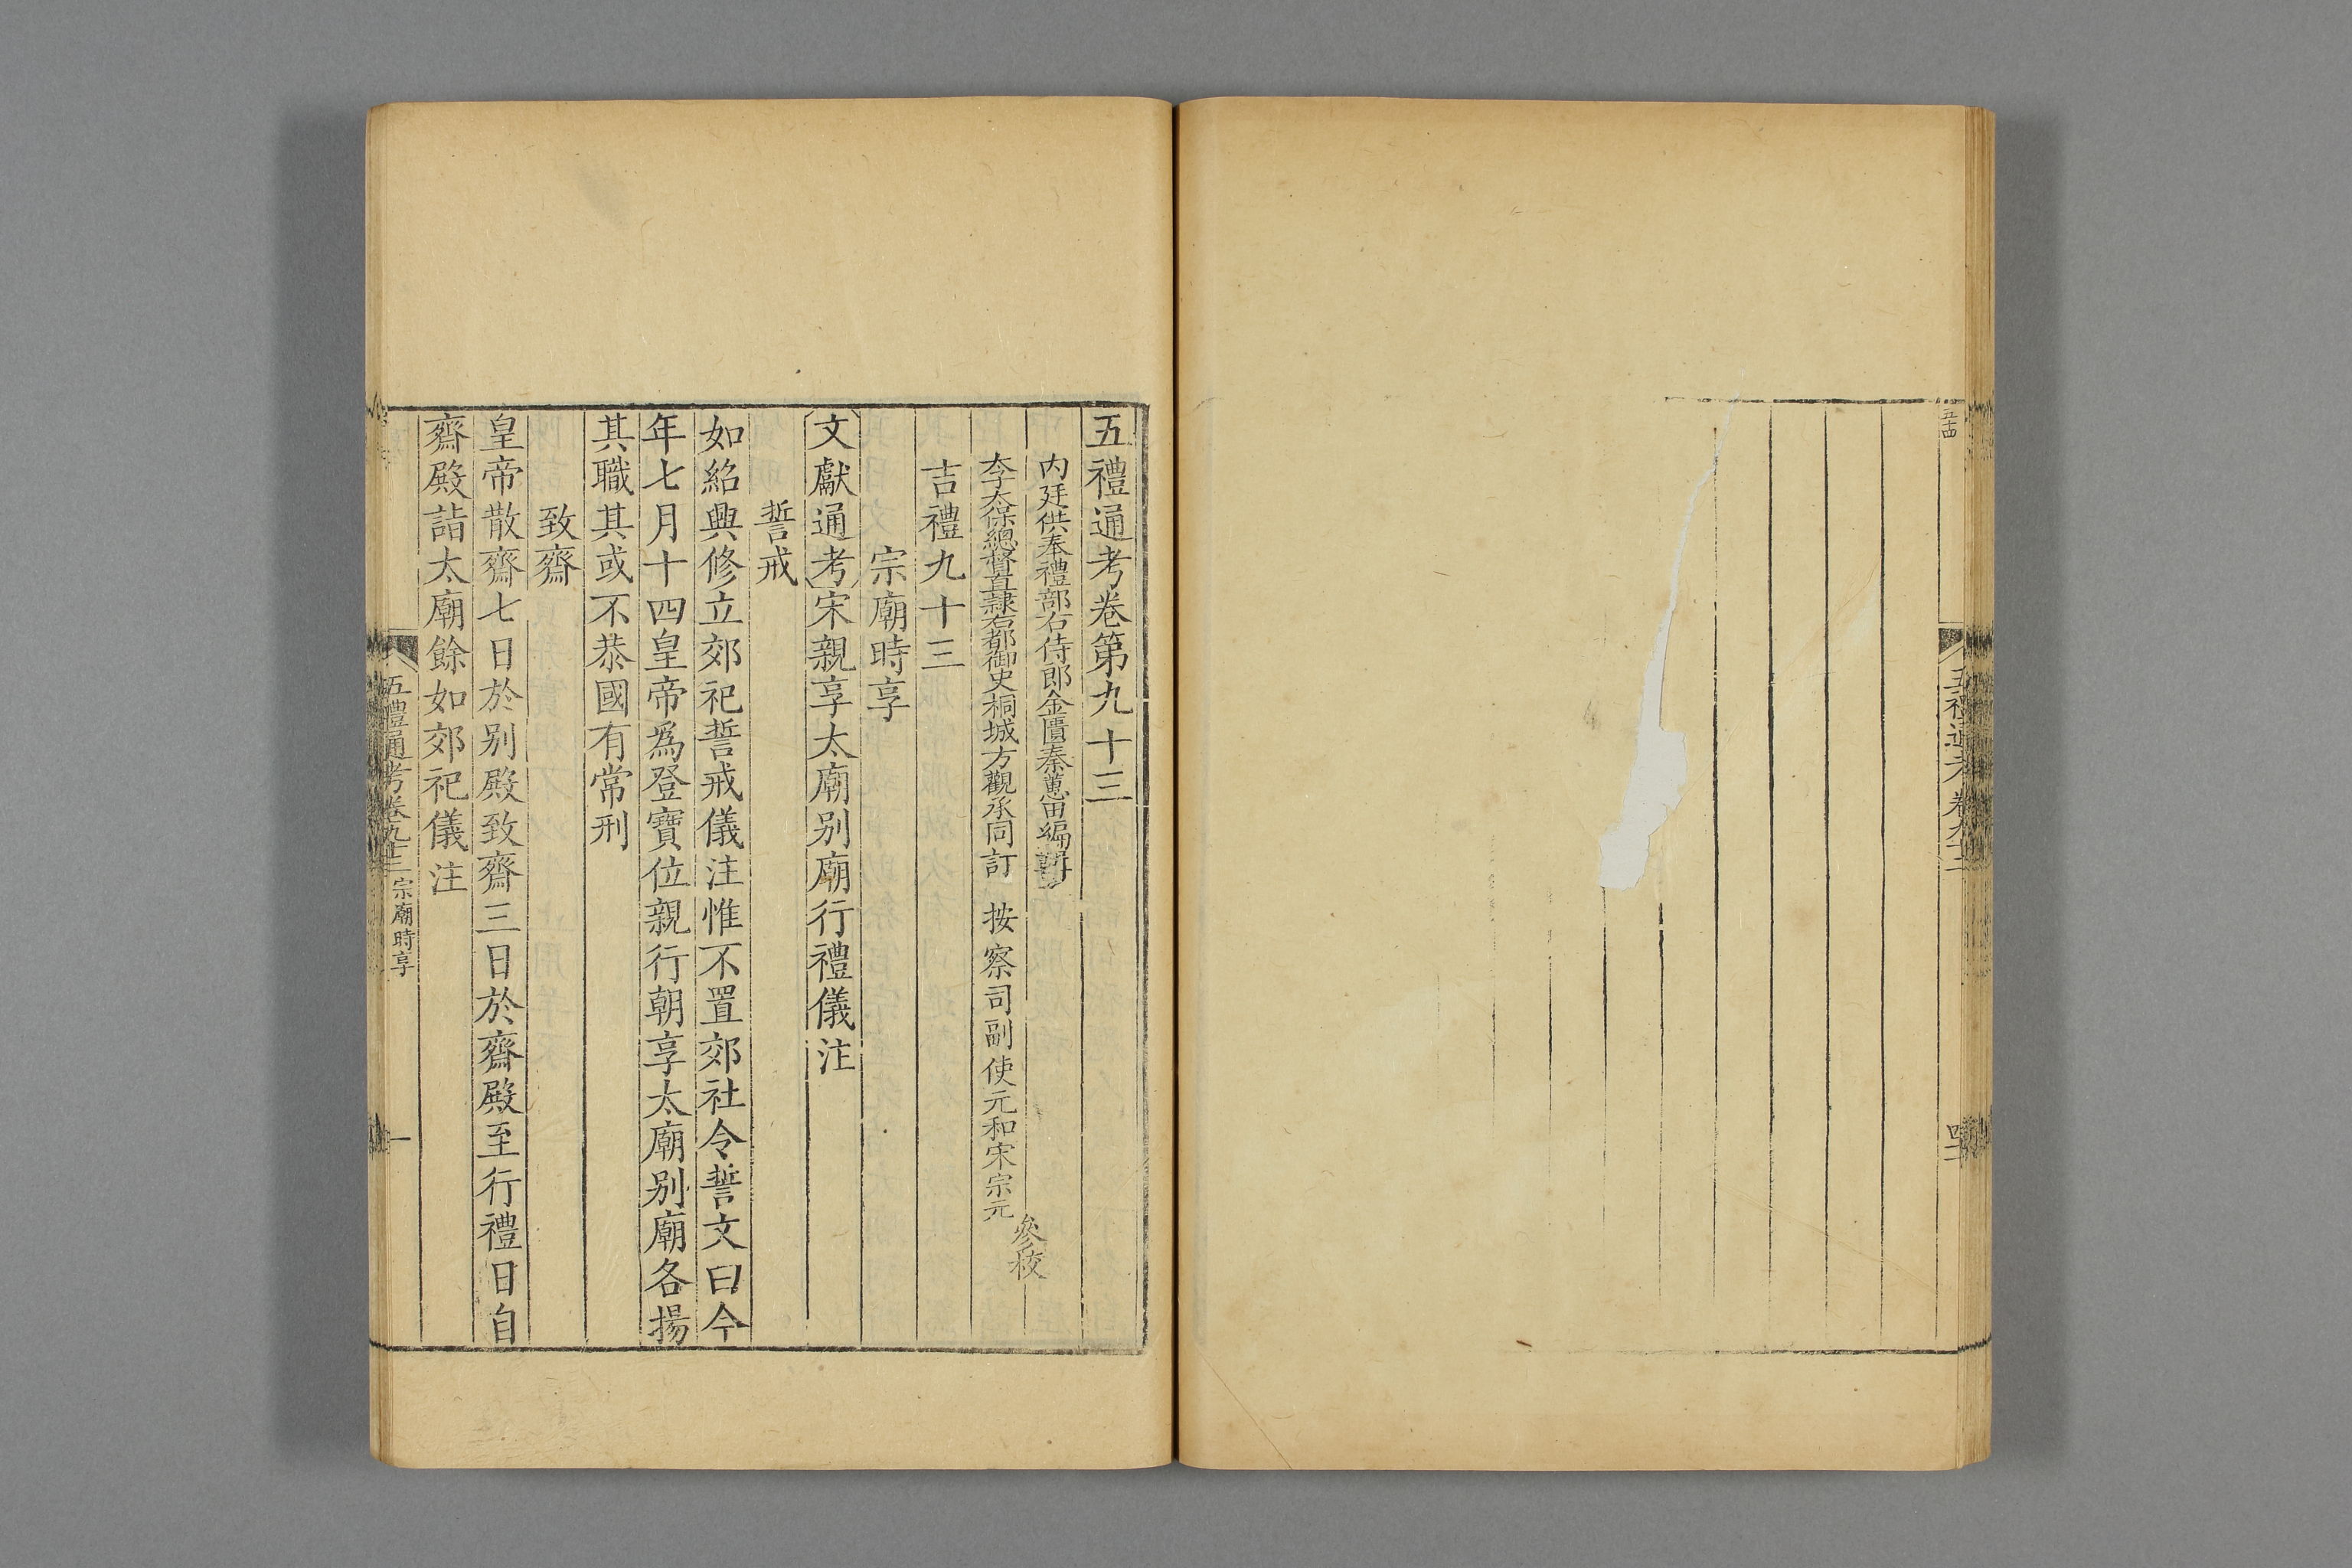 五禮通考卷第九十三
内廷供奉禮部右侍郎金匱秦蕙田編輯
太子太保總督直隸右都御史桐城方觀承同訂 按察司副使元和宋宗元
參校
吉禮九十三
宗廟時享
文獻通考宋親享太廟别廟行禮儀注
誓戒
如紹興修立郊祀誓戒儀注惟不置郊社令誓文曰今
年七月十四皇帝爲登寶位親行朝享太廟别廟各揚
其職其或不恭國有常刑
致齋
皇帝散齋七日於别殿致齋三日於齋殿至行禮日自
齋殿詣太廟餘如郊祀儀注
五禮通考卷九十三 宗廟時享
一